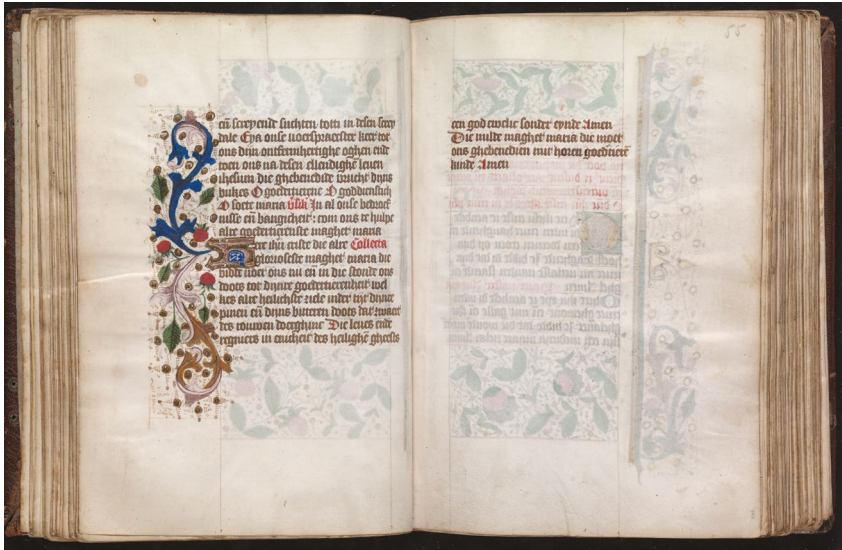 eñ screyende suchten totti in desen screy
dale Eya onse voerspraecster keer toe
ons dijn ontfermhertighe oghen ende
toen ons na desen ellendighē leuen
ihesum die ghebenedide vrucht dijns
bukes O goedertierene O goddienstich
O soete maria In al onse bedroef
nisse eñ bangicheit com ons te hulpe
alre goedertierenste maghet maria
ere ihū criste die alre Collecta
glorioseste maghet maria die
bidde voer ons nu eñ in die stonde ons
doots tot dijnre goedertierenheit wel
kes alre heilichste ziele inder tijt dijnre
pinen eñ dijns bitteren doots dat zwaert
des rouwen doerghinc Die leues ende
regneers in enicheit des heilighē gheests
55
een god ewelic sonder eynde Amen
Die milde maghet maria die moet
ons ghebenedien mit horen goedertierē
kinde Amen